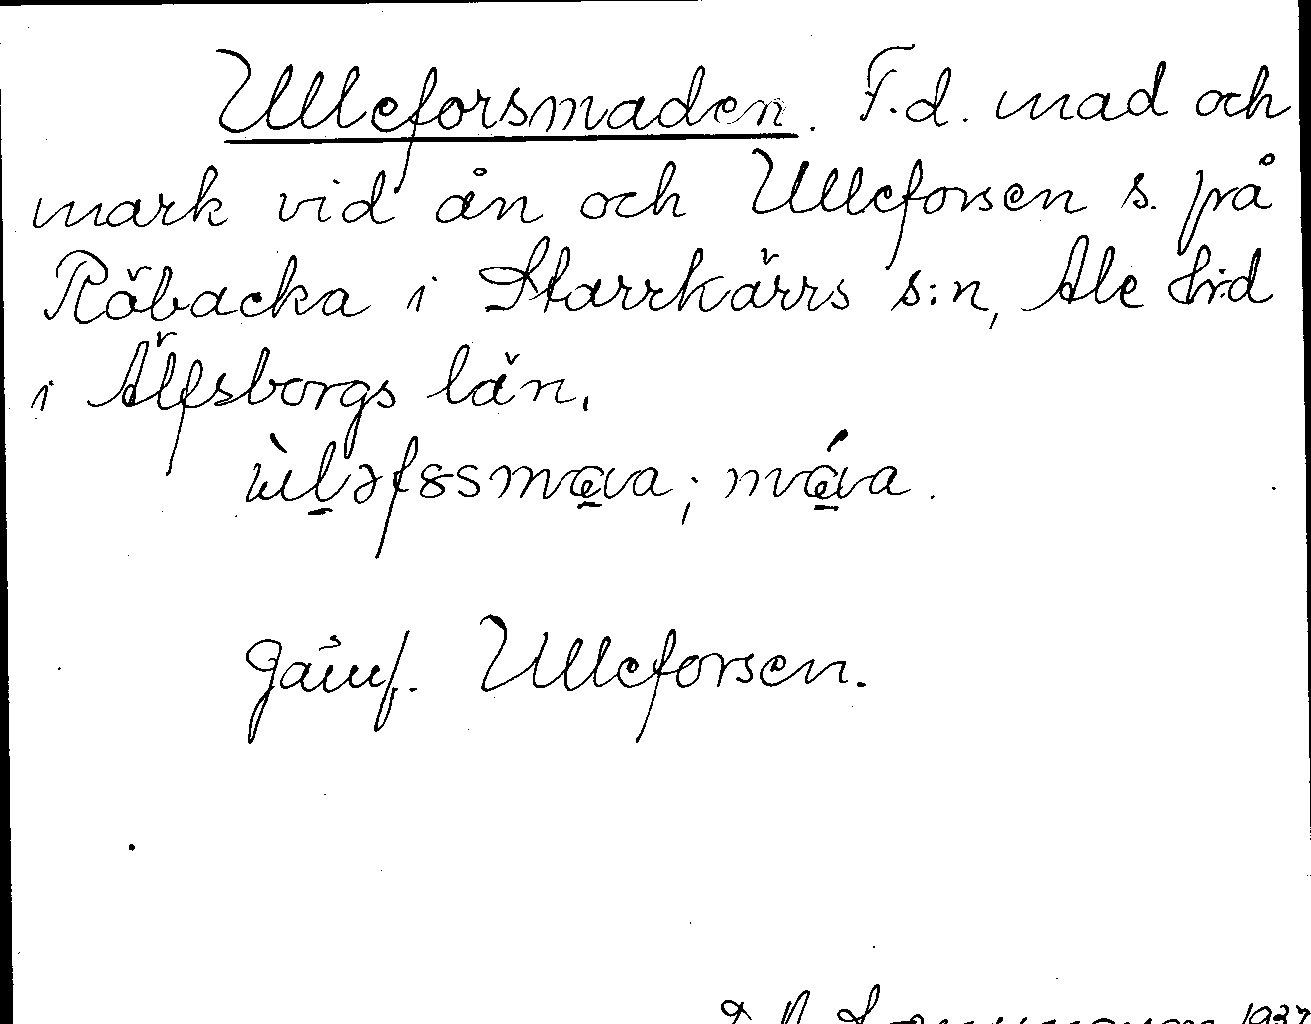 Ulleforsmaden. F.d. mad och
mark vid ån och Ulleforsen s. på
Röbacka i Starrkärrs s:n, Ale h:d
i Älfsborgs län.
Jämf. Ulleforsen.
1937